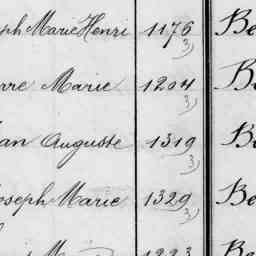 eph Marie Henri 1176 Be
3)
rre Marie 1204 Be
3)
an Auguste 1319 Be
3)
oseph Marie 1329 Be
3)